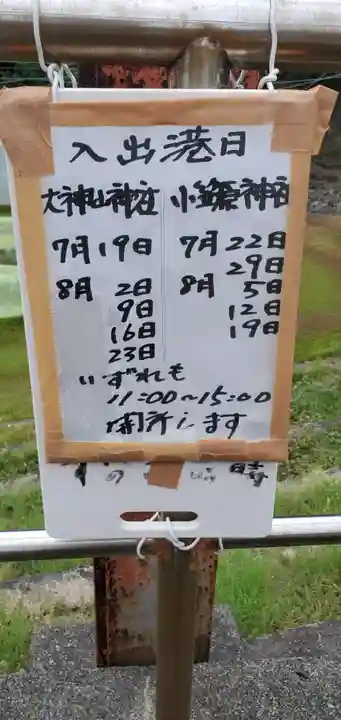 入出港日
大神山神社 小笠原神社
7月19日 7月22日
29日
8月 2日 8月 5日
9日 12日
16日 19日
23日
いずれも
11:00~15:00
開所します